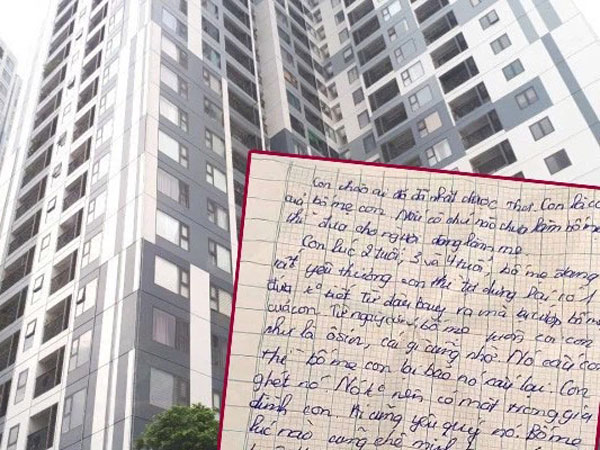 Con chào ai đó đã nhặt được thư. Con là c
quả bố mẹ con. Nếu cô chú nào chưa làm bố mẹ
thì đưa cho người đang làm mẹ.
Con lúc 2 tuổi, 3 và 4 tuổi, bố mẹ đang
rất yêu thương con thì tự dưng có 1
đứa ko tốt từ đâu bay ra mà bố mẹ
của con. Từ ngay bố mẹ luôn coi con
như là ôsin, cái gì cũng nhờ. Nó cấu con
thế bố mẹ con lại bảo nó cấu lại. Con
ghét nó. Nó ko nên có mặt trong gia
đình con. Ai cũng yêu quý nó. Bố mẹ
lúc nào cũng chê mình